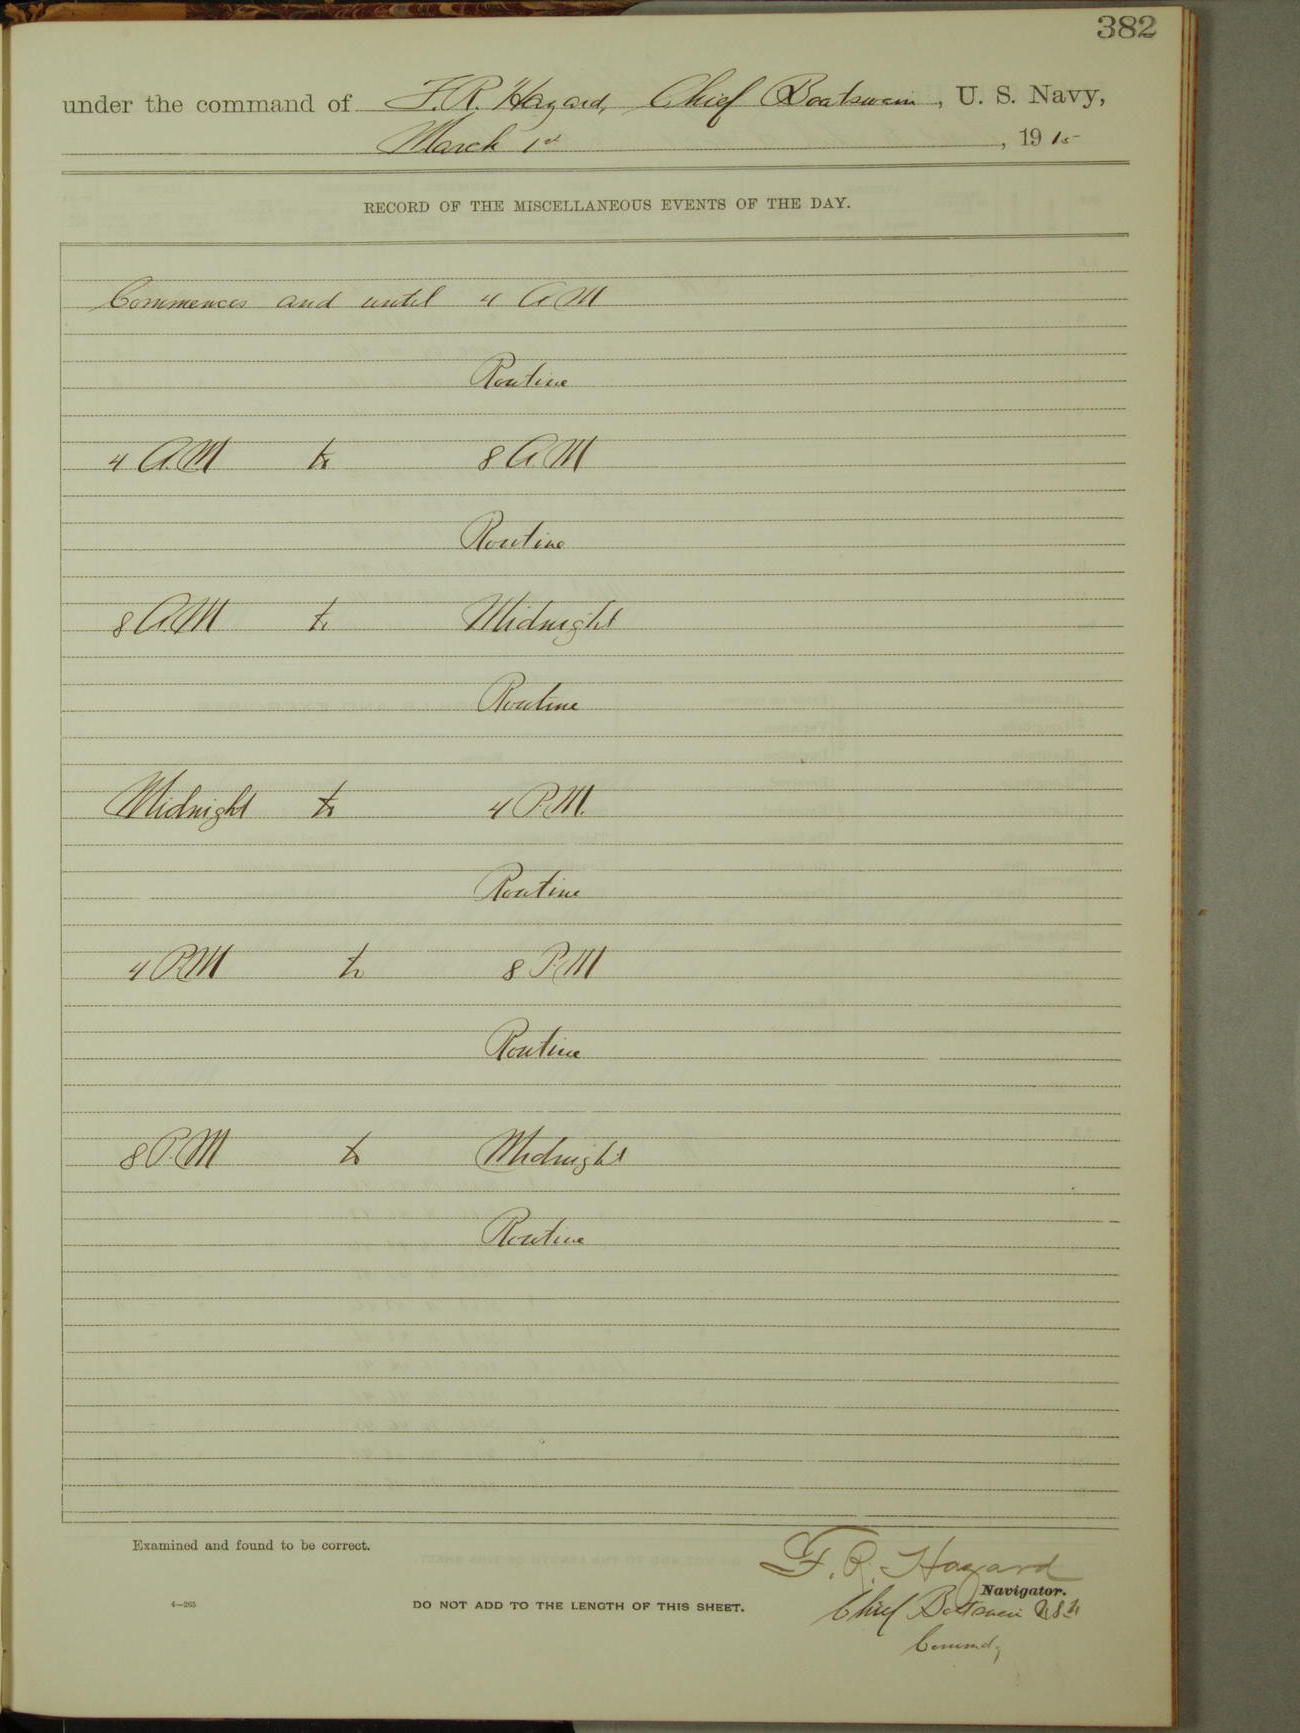 382
under the command of F. R. Hazard, Chief Boatswain, U. S. Navy,
March 1st, 1915
RECORD OF THE MISCELLANEOUS EVENTS OF THE DAY.
Commences and until 4 A M
Routine
4 A.M to 8 A.M
Routine
8 A.M to Midnight
Routine
Midnight to 4 P.M.
Routine
4 P.M to 8 P.M
Routine
8 P.M to Midnight
Routine
Examined and found to be correct.
F. R. Hazard
Navigator.
4—265
DO NOT ADD TO THE LENGTH OF THIS SHEET.
Chief Boatswain U S N
Commdg